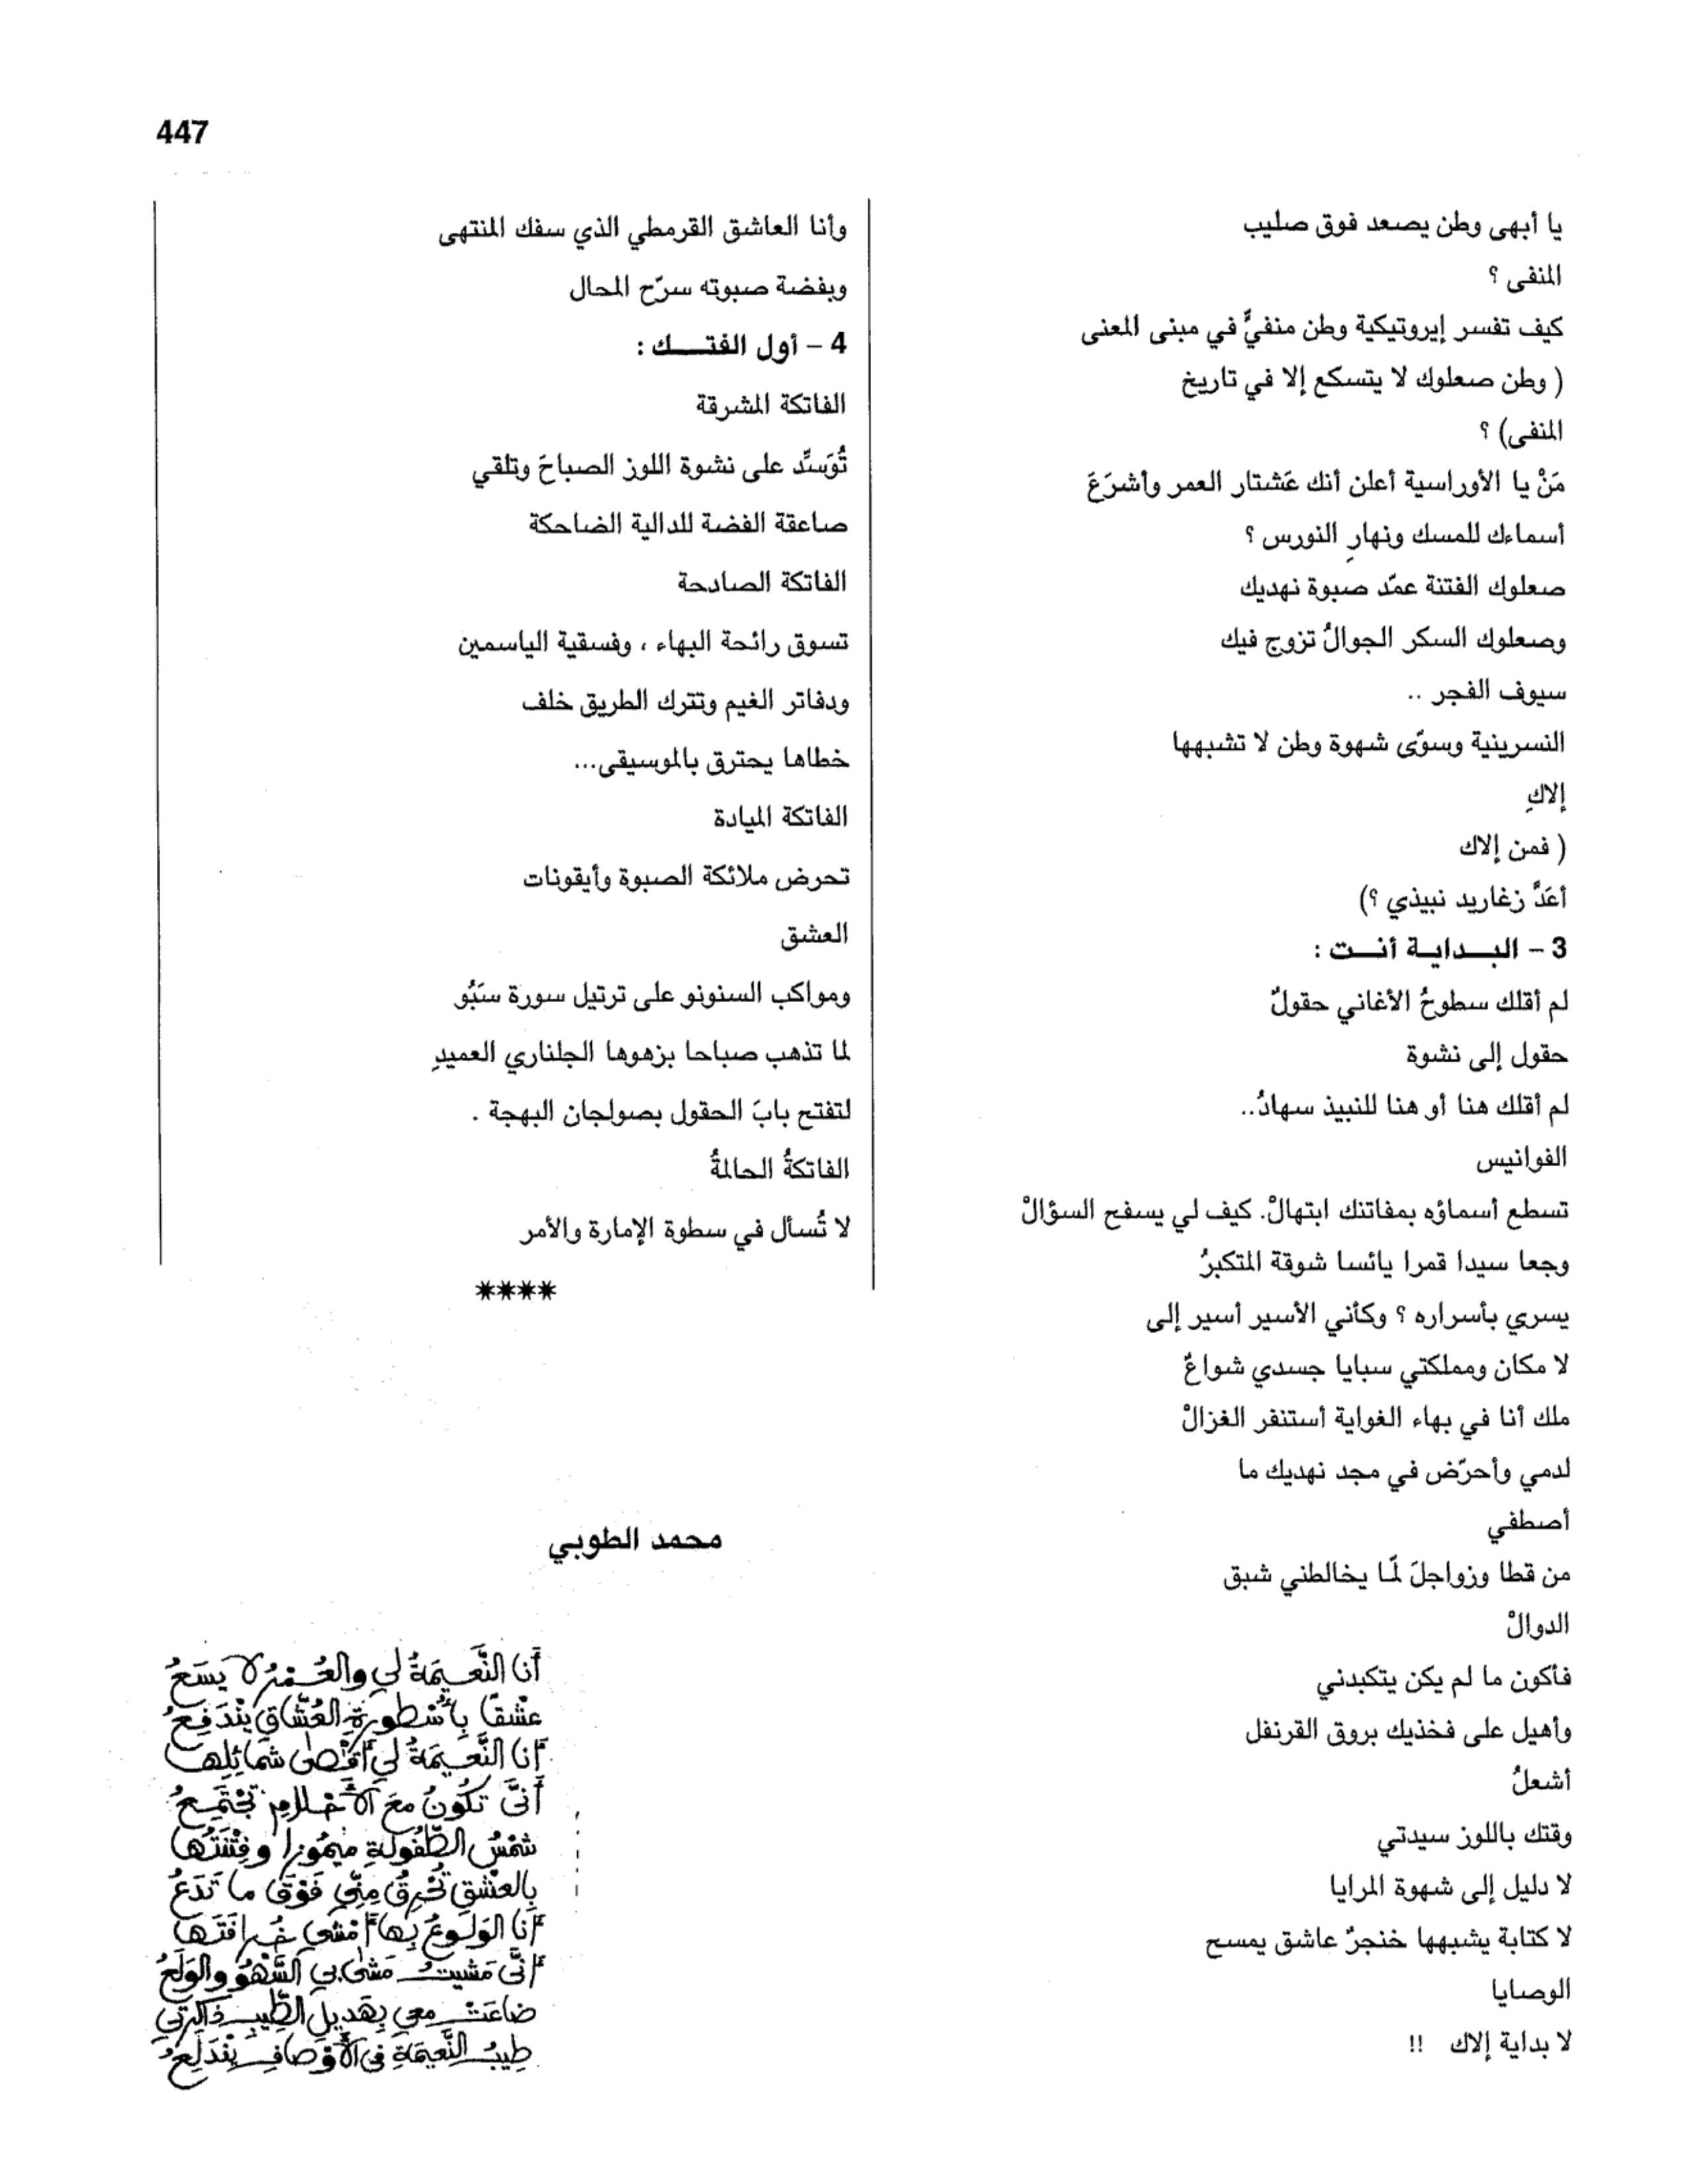 447
يا أبهى وطن يصعد فوق صليب
المنفى ؟
كيف تفسر إيروتيكية وطن منفيٍّ في مبنى المعنى
( وطن صعلوك لا يتسكع إلا في تاريخ
المنفى) ؟
مَنْ يا الأوراسية أعلن أنك عَشتار العمر وأشرَعَ
أسماءك للمسك ونهارِ النورس ؟
صعلوك الفتنة عمّد صبوة نهديك
وصعلوك السكر الجوالُ تزوج فيك
سيوف الفجر ..
النسرينية وسوّى شهوة وطن لا تشبهها
إلاكِ
( فمن إلاك
أعَدَّ زغاريد نبيذي ؟)
3 – البـــداية أنـــت :
لم أقلك سطوحُ الأغاني حقولٌ
حقول إلى نشوة
لم أقلك هنا أو هنا للنبيذ سهادُ..
الفوانيس
تسطع أسماؤه بمفاتنك ابتهالْ. كيف لي يسفح السؤالْ
وجعا سيدا قمرا يائسا شوقة المتكبرُ
يسري بأسراره ؟ وكأني الأسير أسير إلى
لا مكان ومملكتي سبايا جسدي شواعٌ
ملك أنا في بهاء الغواية أستنفر الغزالْ
لدمي وأحرّض في مجد نهديك ما
أصطفي
من قطا وزواجلَ لمّا يخالطني شبق
الدوالْ
فأكون ما لم يكن يتكبدني
وأهيل على فخذيك بروق القرنفل
أشعلُ
وقتك باللوز سيدتي
لا دليل إلى شهوة المرايا
لا كتابة يشبهها خنجرٌ عاشق يمسح
الوصايا
لا بداية إلاك !!
وأنا العاشق القرمطي الذي سفك المنتهى
وبفضة صبوته سرّح المحال
4 – أول الفتـــــك :
الفاتكة المشرقة
تُوَسِّد على نشوة اللوز الصباحَ وتلقي
صاعقة الفضة للدالية الضاحكة
الفاتكة الصادحة
تسوق رائحة البهاء ، وفسقية الياسمين
ودفاتر الغيم وتترك الطريق خلف
خطاها يحترق بالموسيقى...
الفاتكة الميادة
تحرض ملائكة الصبوة وأيقونات
العشق
ومواكب السنونو على ترتيل سورة سَبُو
لما تذهب صباحا بزهوها الجلناري العميدِ
لتفتح بابَ الحقول بصولجان البهجة .
الفاتكةُ الحالمةُ
لا تُسأل في سطوة الإمارة والأمر
****
محمد الطوبي
أَنا النَّعيمَةُ لي والعُـمْرُ لا يسَعُ
عشْقًا بِأُسْطورَةِ العُشَّاقِ يَنْدَفِعُ
أَنا النَّعيمَةُ لي أَقْصى شمائِلِها
أَنَّى تَكُونُ معَ الأَحْلامِ تجْتَمِعُ
شمْسُ الطُّفُولَةِ ميمُوزا وفِتْنَتُها
بِالعشْقِ تَحْرِقُ مِنِّي فَوْقَ ما تَدَعُ
أَنا الوَلـوعُ بِها أَمْشي خُرافَتَها
أَنَّى مَشيتُ مَشى بي السَّهْوُ والوَلَعُ
ضاعَتْ معي بِهَديلِ الطِّيبِ ذاكِرَتي
طِيبُ النَّعيمَةِ في الأَوْصافِ يَنْدَلِعُ